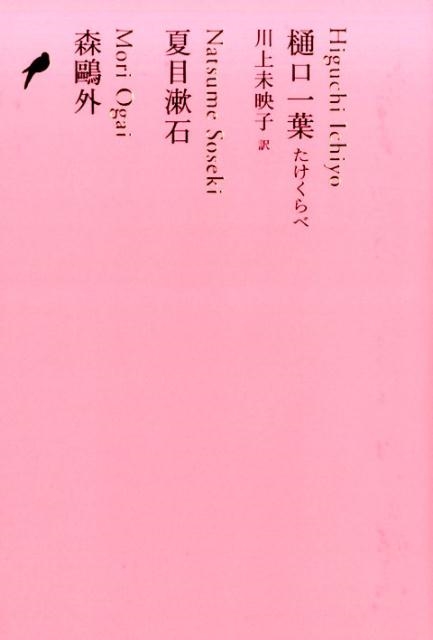 Higuchi Ichiyo
樋口一葉 たけくらべ
川上未映子 訳
Natsume Soseki
夏目漱石
Mori Ogai
森鷗外